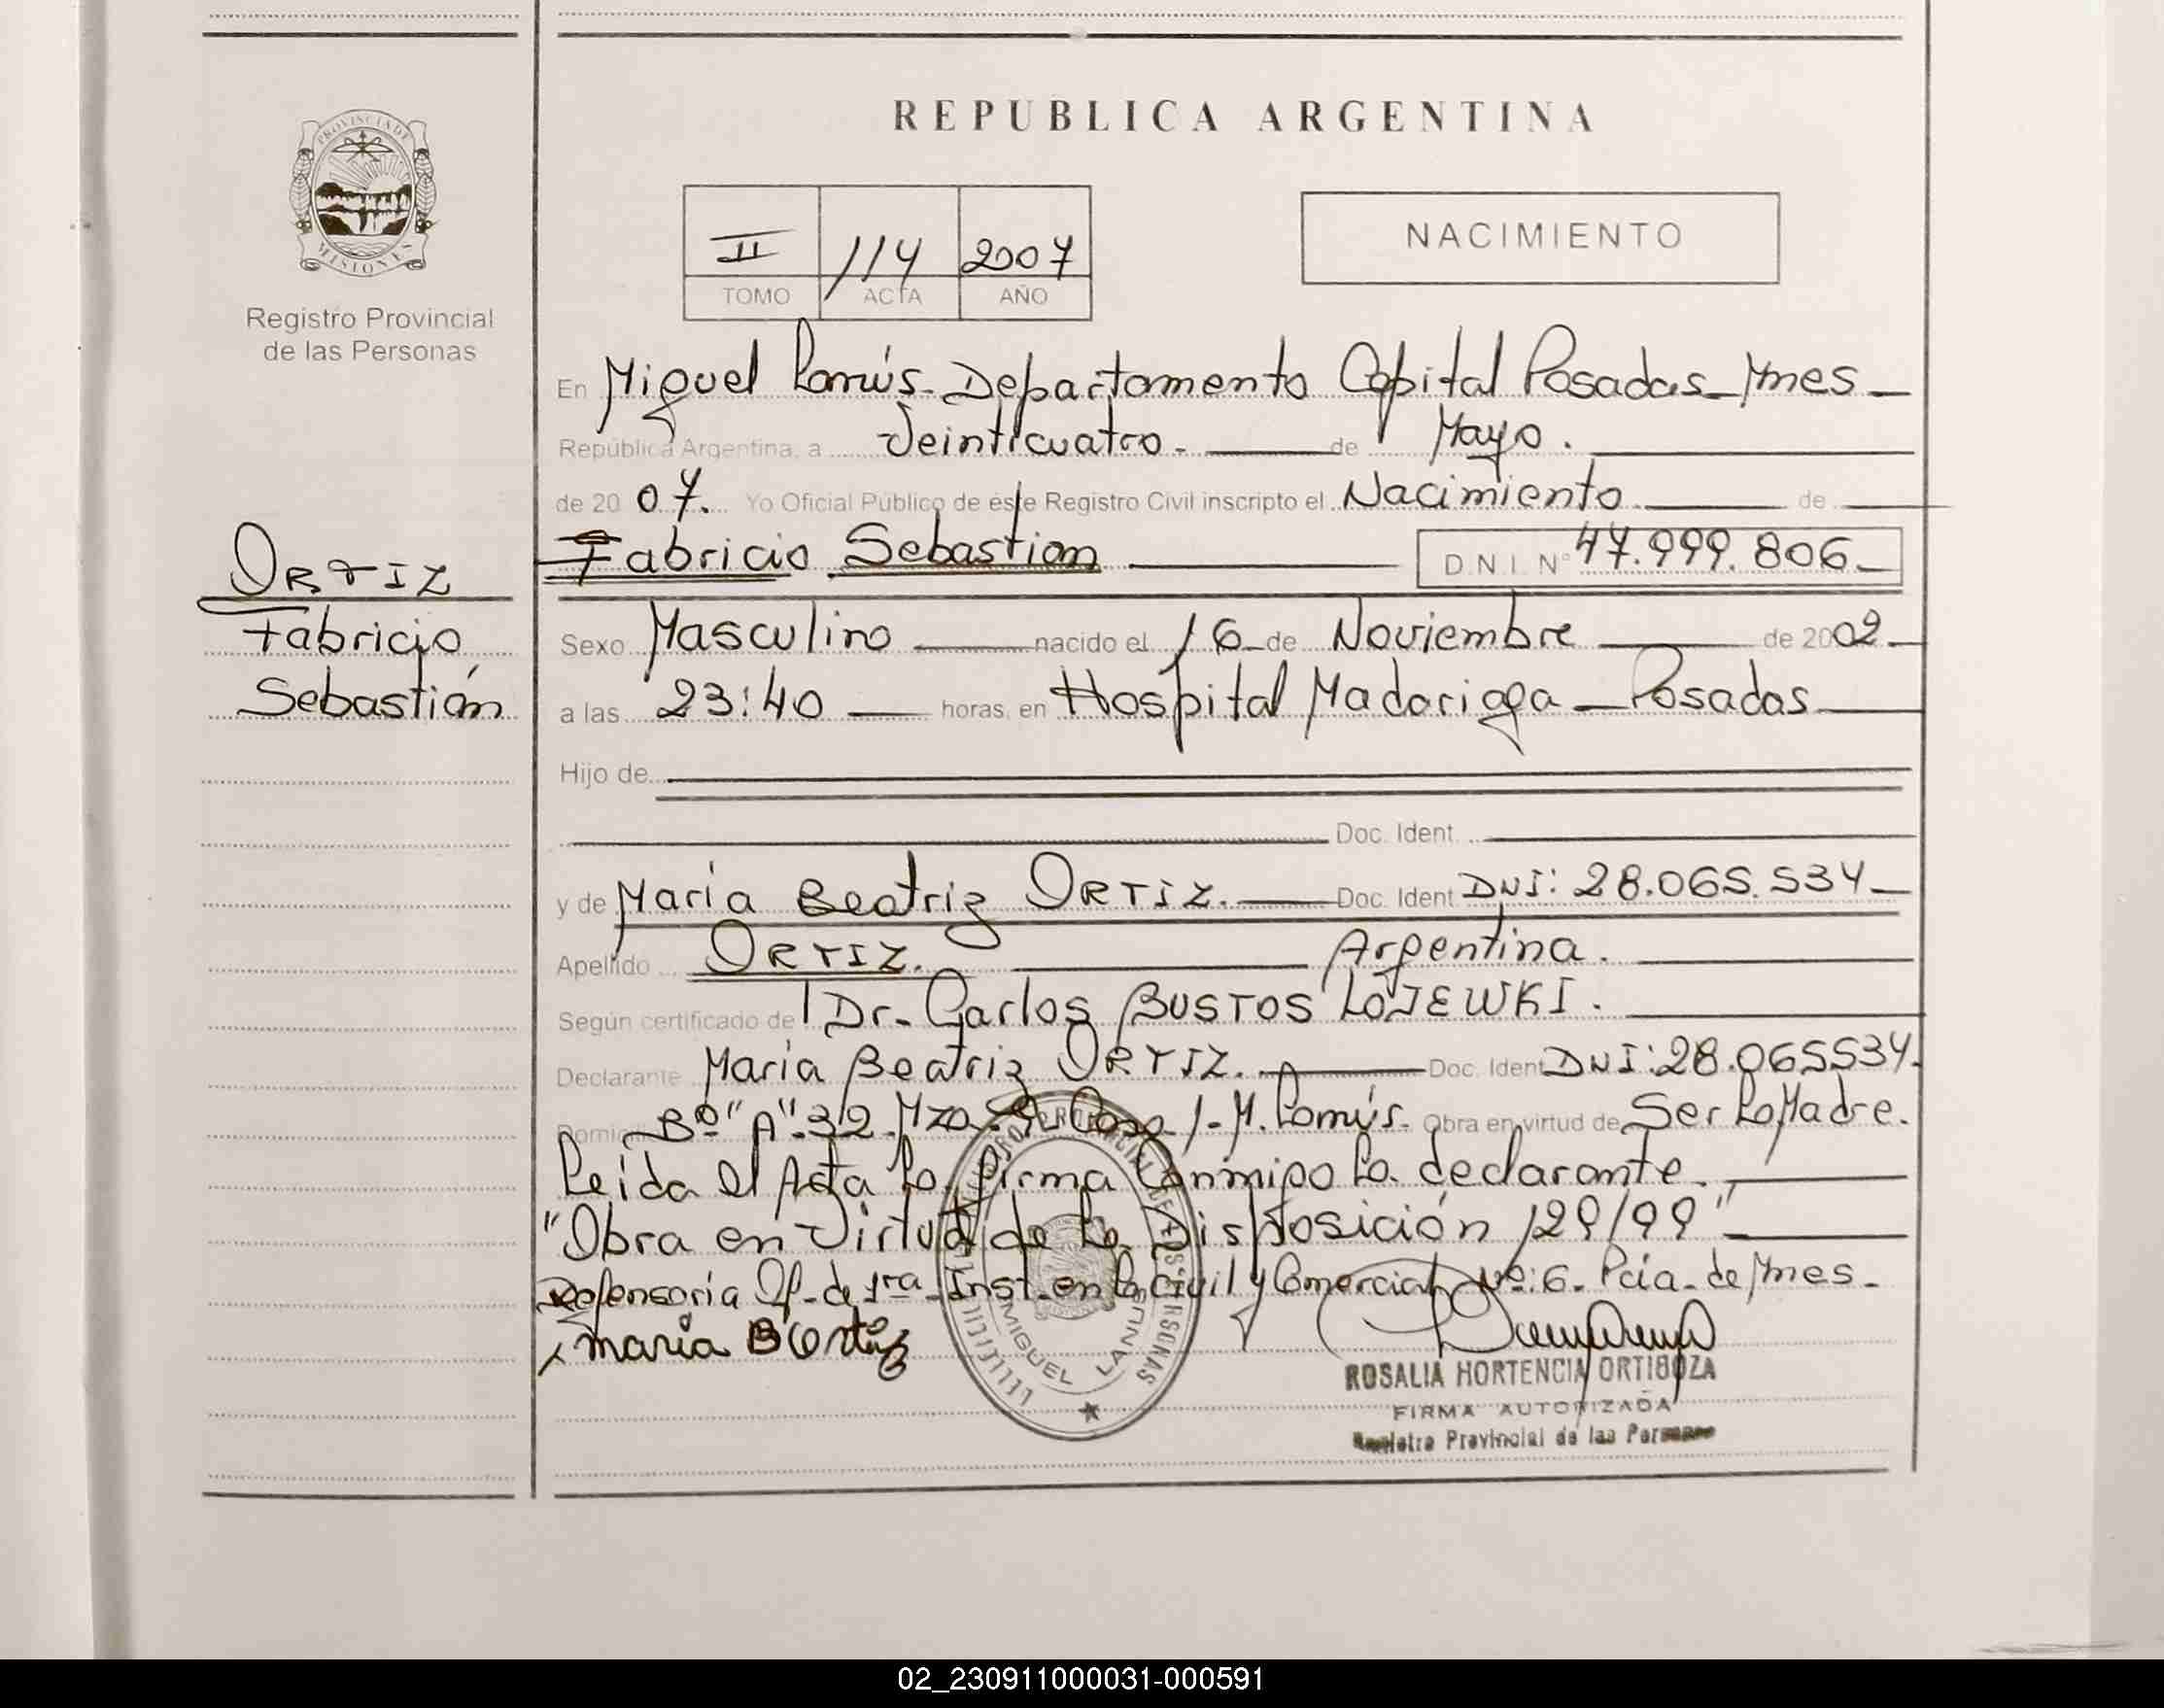 REPUBLICA ARGENTINA
PROVINCIA DE
MISIONES
Registro Provincial
de las Personas
II 114 2007
TOMO ACTA AÑO
NACIMIENTO
En Miguel Lanús - Departamento Capital Posadas - Mnes -
República Argentina, a Veinticuatro. de Mayo.
de 20 07. Yo Oficial Público de éste Registro Civil inscripto el Nacimiento de
Fabricio Sebastian D.N.I. N° 47.999.806
ORTIZ
Fabricio
Sebastián
Sexo Masculino nacido el 16 de Noviembre de 2002.
a las 23:40 horas, en Hospital Madariaga - Posadas
Hijo de
Doc. Ident.
y de María Beatriz ORTIZ. Doc. Ident. DNI: 28.065.534
Apellido ORTIZ. Argentina.
Según certificado de Dr. Carlos BUSTOS LOJEWKI.
Declarante María Beatriz ORTIZ. Doc. Ident DNI: 28.065534.
Domici Bº "A" 32 Mza. Casa 1 - M. Lanús. Obra en virtud de Ser La Madre.
Leída el Acta La firma Conmigo La declarante.
"Obra en Virtud de La Disposición 129/99"
Defensoría Of. de 1ra Inst. en lo Civil y Comercial Nº: 6. Pcia. de Mnes.
x maria B Ortiz
REGISTRO PROVINCIAL DE LAS PERSONAS
MIGUEL LANUS
ROSALIA HORTENCIA ORTIGOZA
FIRMA AUTORIZADA
Registro Provincial de las Personas
02_230911000031-000591